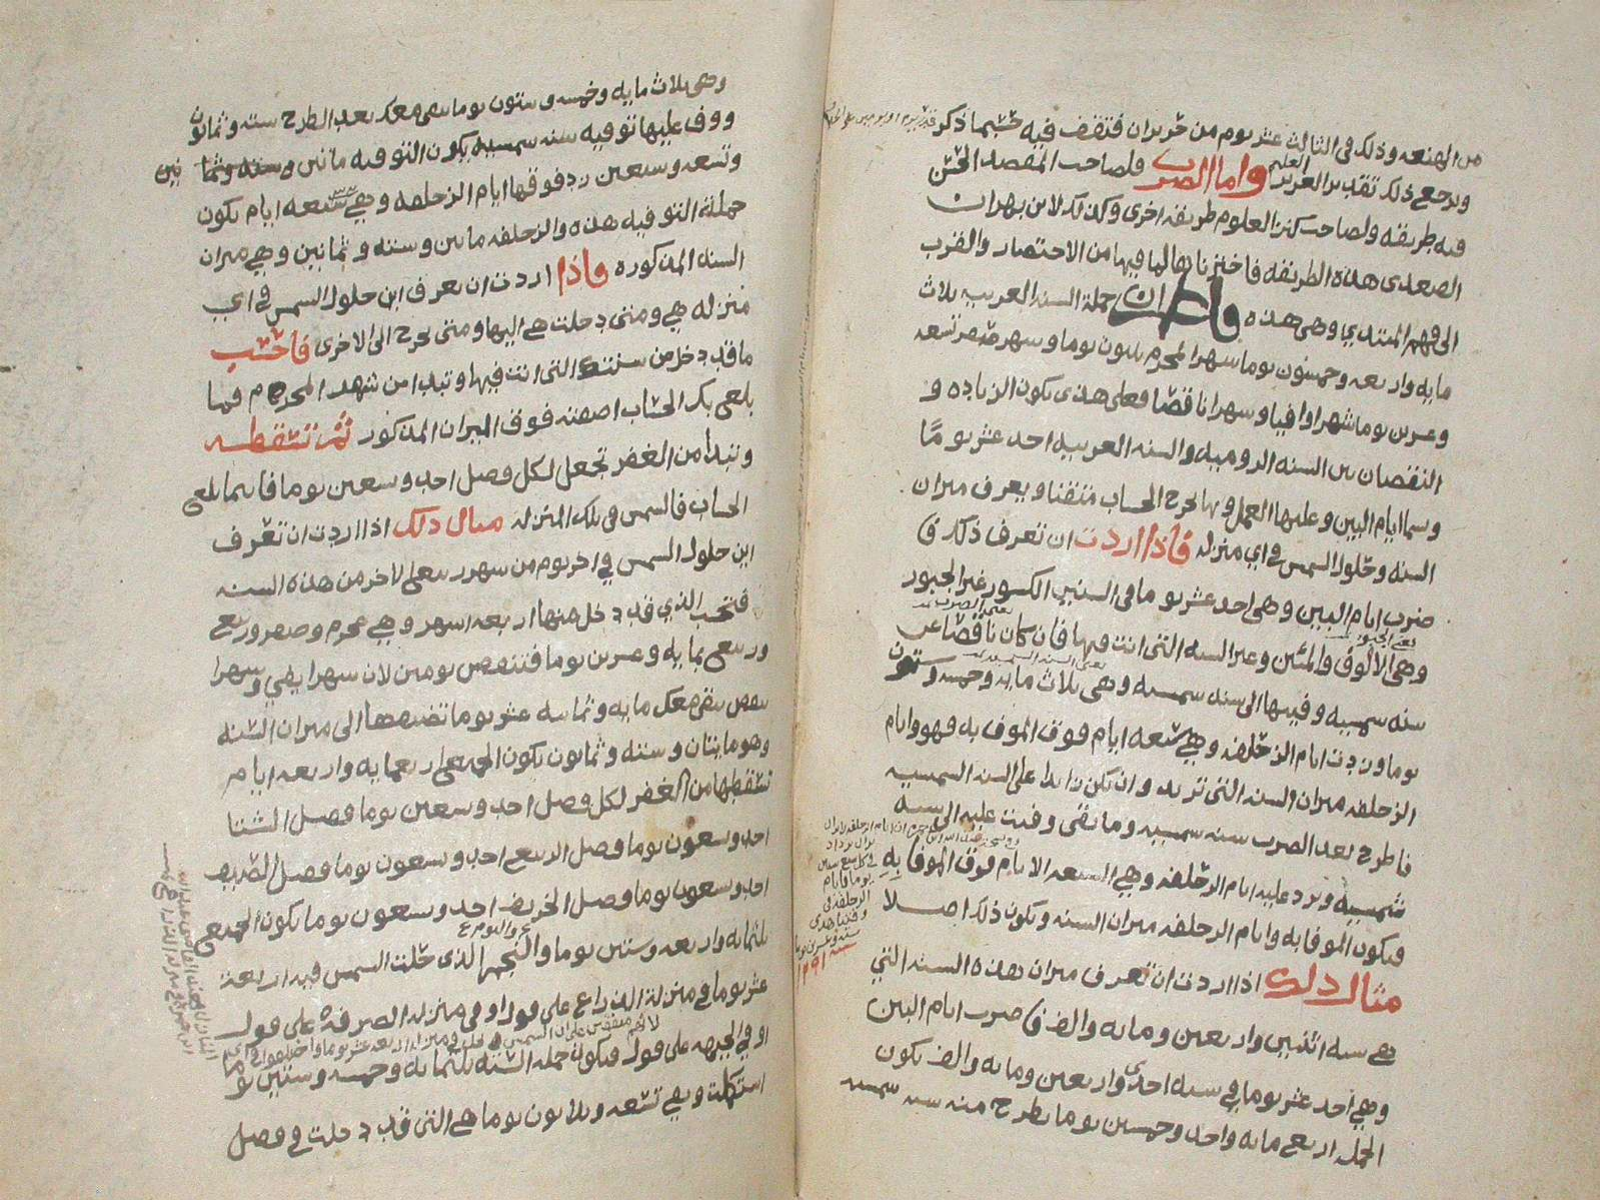 من الهنعه وذلك في الثالث عشر يوم من حزيران فتقف فيه حسبما ذكر
ويرجع ذلك تقدير العزيز العليم واما الضرب فلصاحب المقصد الحسن
فيه طريقه ولصاحب كنز العلوم طريقه اخرى وكذلك لابن بهران
الصعدي هذه الطريقه فاخترناها لما فيها من الاختصار والقرب
الى فهم المبتدي وهي هذه فاعلم ان جملة السنه العربيه ثلاث
مايه واربعه وخمسون يوما شهر المحرم ثلاثون يوما وشهر صفر تسعه
وعشرين يوما شهرا وافيا وشهرا ناقصا فعلى هذى يكون الزياده و
النقصان بين السنه الروميه والسنه العربيه احد عشر يوما
وسما ايام البين وعليها العمل وبها يخرج الحساب متقنا ويعرف ميزان
السنه وحلول الشمس في اي منزله فاذا اردت ان تعرف ذلك ف
ضرب ايام البين وهي احد عشر يوما في السنين الكسور غير المجبور
وهي الالوف والمئين وغير السنه التي انت فيها فان كان ناقصا عن
سنه شمسيه وفيتها الى سنه شمسيه وهي ثلاث مايه وخمسه وستون
يوما وزدت ايام الزحلفه وهي سبعه ايام فوق الموفى به فهو وايام
الزحلفه ميزان السنه التي تريد وان يكن زايدا على السنه الشمسيه
فاطرح بعد الضرب سنه شمسيه وما بقي وفيت عليه الى سنه
شمسيه وتزد عليه ايام الزحلفه وهي السبعه الايام فوق الموفا به
فيكون الموفا به وايام الزحلفه ميزان السنه ويكون ذلك اصلا
مثال ذلك اذا اردت ان تعرف ميزان هذه السنه التي
هي سنه اثنين واربعين ومايه والف فاضرب ايام البين
وهي احد عشر يوما في سنه احدى واربعين ومايه والف يكون
الجمله اربعمايه واحد وخمسين يوما يطرح منه سنه شمسيه
سنه ١٢٩١
وهي ثلاث مايه وخمسه وستون يوما يبقى معك بعد الطرح سته وثمانون
ووف عليها توفيه سنه شمسيه يكون التوفيه ماتين
وتسعه وسبعين زد فوقها ايام الزحلفه وهي سبعه ايام يكون
جملة التوفيه هذه والزحلفه ماتين وسته وثمانين وهي ميزان
السنه المذكوره فاذا اردت ان تعرف اين حلول الشمس في اي
منزله هي ومتى دخلت هي اليها ومتى يخرج الى الاخرى فاحسب
ما قد دخل من سنتك التي انت فيها وتبدا من شهر المحرم فما
بلغ بك الحساب اضفته فوق الميزان المذكور ثم تسقطه
وتبدا من الغفر تجعل لكل فصل احد وتسعين يوما فاينما بلغ
الحساب فالشمس في تلك المنزله مثال ذلك اذا اردت ان تعرف
اين حلول الشمس في اخر يوم من شهر ربيع الاخر من هذه السنه
فتحسب الذي قد دخل منها اربعه اشهر وهي محرم وصفر وربيع
وربيع بمايه وعشرين يوما فتنقص يومين لان شهرا يفي وشهرا
ينقص يبقى معك مايه وثمانيه عشر يوما تضيفها الى ميزان السنه
وهو مايتان وسته وثمانون يكون الجميع اربعمايه واربعه ايام
تسقطها من الغفر لكل فصل احد وتسعين يوما فصل الشتا
احد وتسعون يوما وفصل الربيع احد وتسعون يوما وفصل الصيف
احد وتسعون يوما وفصل الخريف احد وتسعون يوما يكون الجميع
ثلثمايه واربعه وستين يوما والنجم الذي حلت الشمس فيه اربعة
عشر يوما في منزلة الذراع على قول او في منزله الصرفه على قول
او في الجبهه على قول فيكون جمله السنه ثلثمايه وخمسه وستين يوما
استكملت وبقي تسعه وثلاثون يوما هي التي قد دخلت في فصل